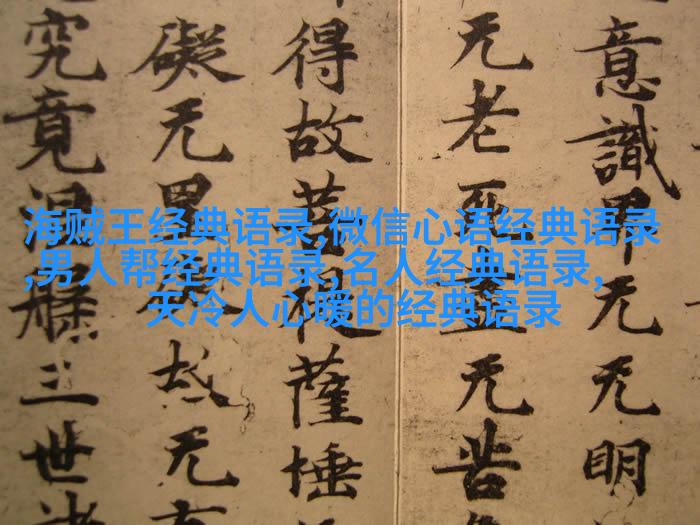 海贼王经典语录,微信心语经典语录
,男人帮经典语录,名人经典语录,
天冷人心暖的经典语录
意識界无无明
无老死盡无苦
得故菩提薩埵
礙无罣礙故无有
究竟涅槃三世諸